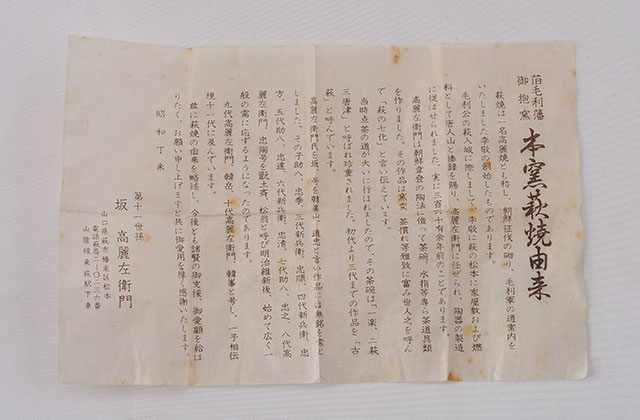 旧毛利藩
御抱窯
本窯萩焼由来
萩焼は一名高麗焼とも称し、朝鮮征伐の砌り、毛利軍の道案内を
いたしました李敬の創始したものであります。
毛利公の萩入城に際しまして、李敬に萩の松本に家屋敷および燃
料として唐人山と俸録を賜り、高麗左衛門に任ぜられ、陶器の製造
に従はせられました。実に三百六十有余年前のことであります。
高麗左衛門は朝鮮章登の陶法に倣って茶碗、水指等専ら茶道具類
を作りました。その作品は窯変、茶慣れ等雅致に富み世人之を呼ん
で「萩の七化」と言い伝えています。
当時点茶の道が大いに行はれましたので、その茶碗は「一楽、二萩
三唐津」と呼ばれ珍重されました。初代より三代までの作品を「古
萩」と呼んでいます。
高麗左衛門氏を坂、号を韓峯山、道忠と言い作品には無銘を常と
しました。その子助八、忠季、三代新兵衛、忠順、四代新兵衛、忠
方、五代助八、忠達、六代新兵衛、忠清、七代助八、忠之、八代高
麗左衛門、忠陶号を翫土斉、松翁と呼び明治維新後、始めて広く一
般の需に応ずるようになったのであります。
九代高麗左衛門、韓岳、十代高麗左衛門、韓峯と号し、一子相伝
現十一代に及んでいます。
茲に萩焼の由来を略述し、今後とも諸賢の御支援、御愛顧を給は
りたく、お願い申し上げますと共に御愛用を厚く感謝いたします。
昭和丁未
第十一世孫
坂 高麗左衛門
山口県萩市椿東区松本
電話萩局二〇二三六番
山陰線東萩駅下車